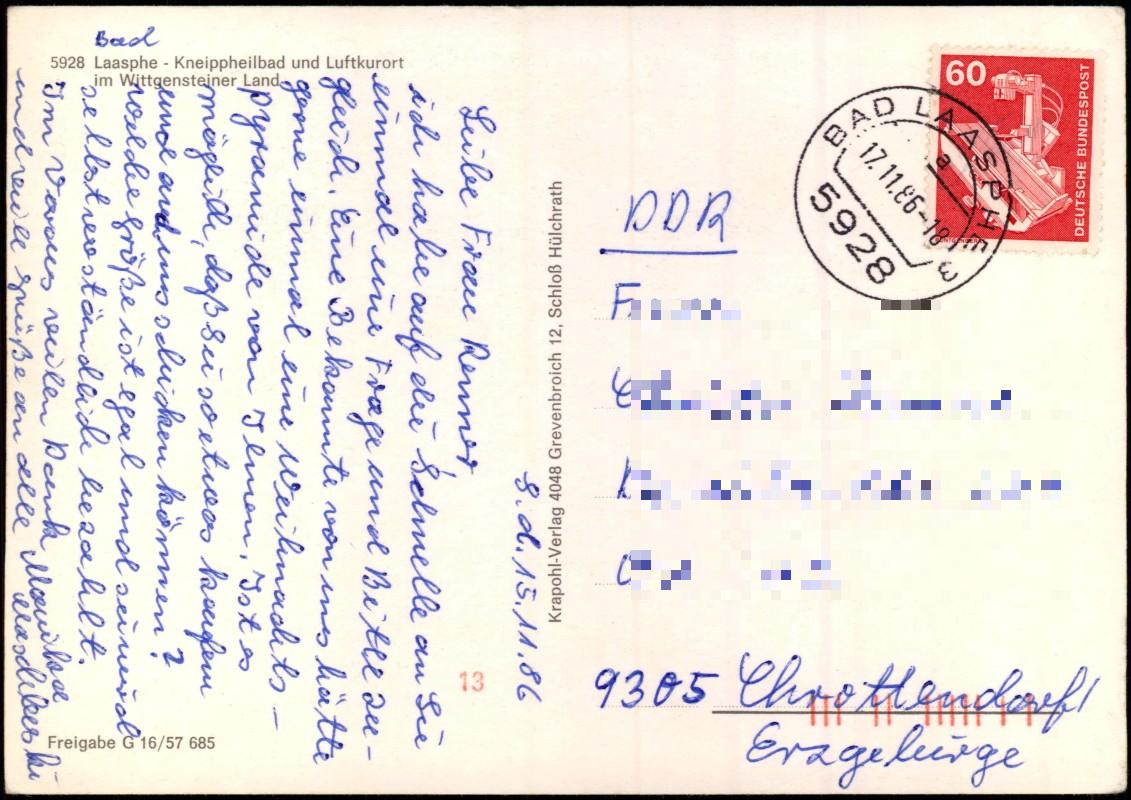 Bad
5928 Laasphe - Kneippheilbad und Luftkurort
im Wittgensteiner Land
S.d. 15.11.86
Liebe Frau Renner,
ich habe auf die Schnelle an Sie
einmal eine Frage und Bitte zu-
gleich. Eine Bekannte von uns hätte
gerne einmal eine Weihnachts-
pyramide von Ihnen. Ist es
möglich, daß Sie so etwas kaufen
und an uns schicken können?
Welche Größe ist egal und sie wird
selbstverständlich bezahlt.
Im Voraus vielen Dank
und viele Grüße an alle
Freigabe G 16/57 685
13
Krapohl-Verlag 4048 Grevenbroich 12, Schloß Hülchrath
60
DEUTSCHE BUNDESPOST
BAD LAASPHE 3
a
17.11.86-18
5928
DDR
9305 Chrottendorf 1
Erzgebirge